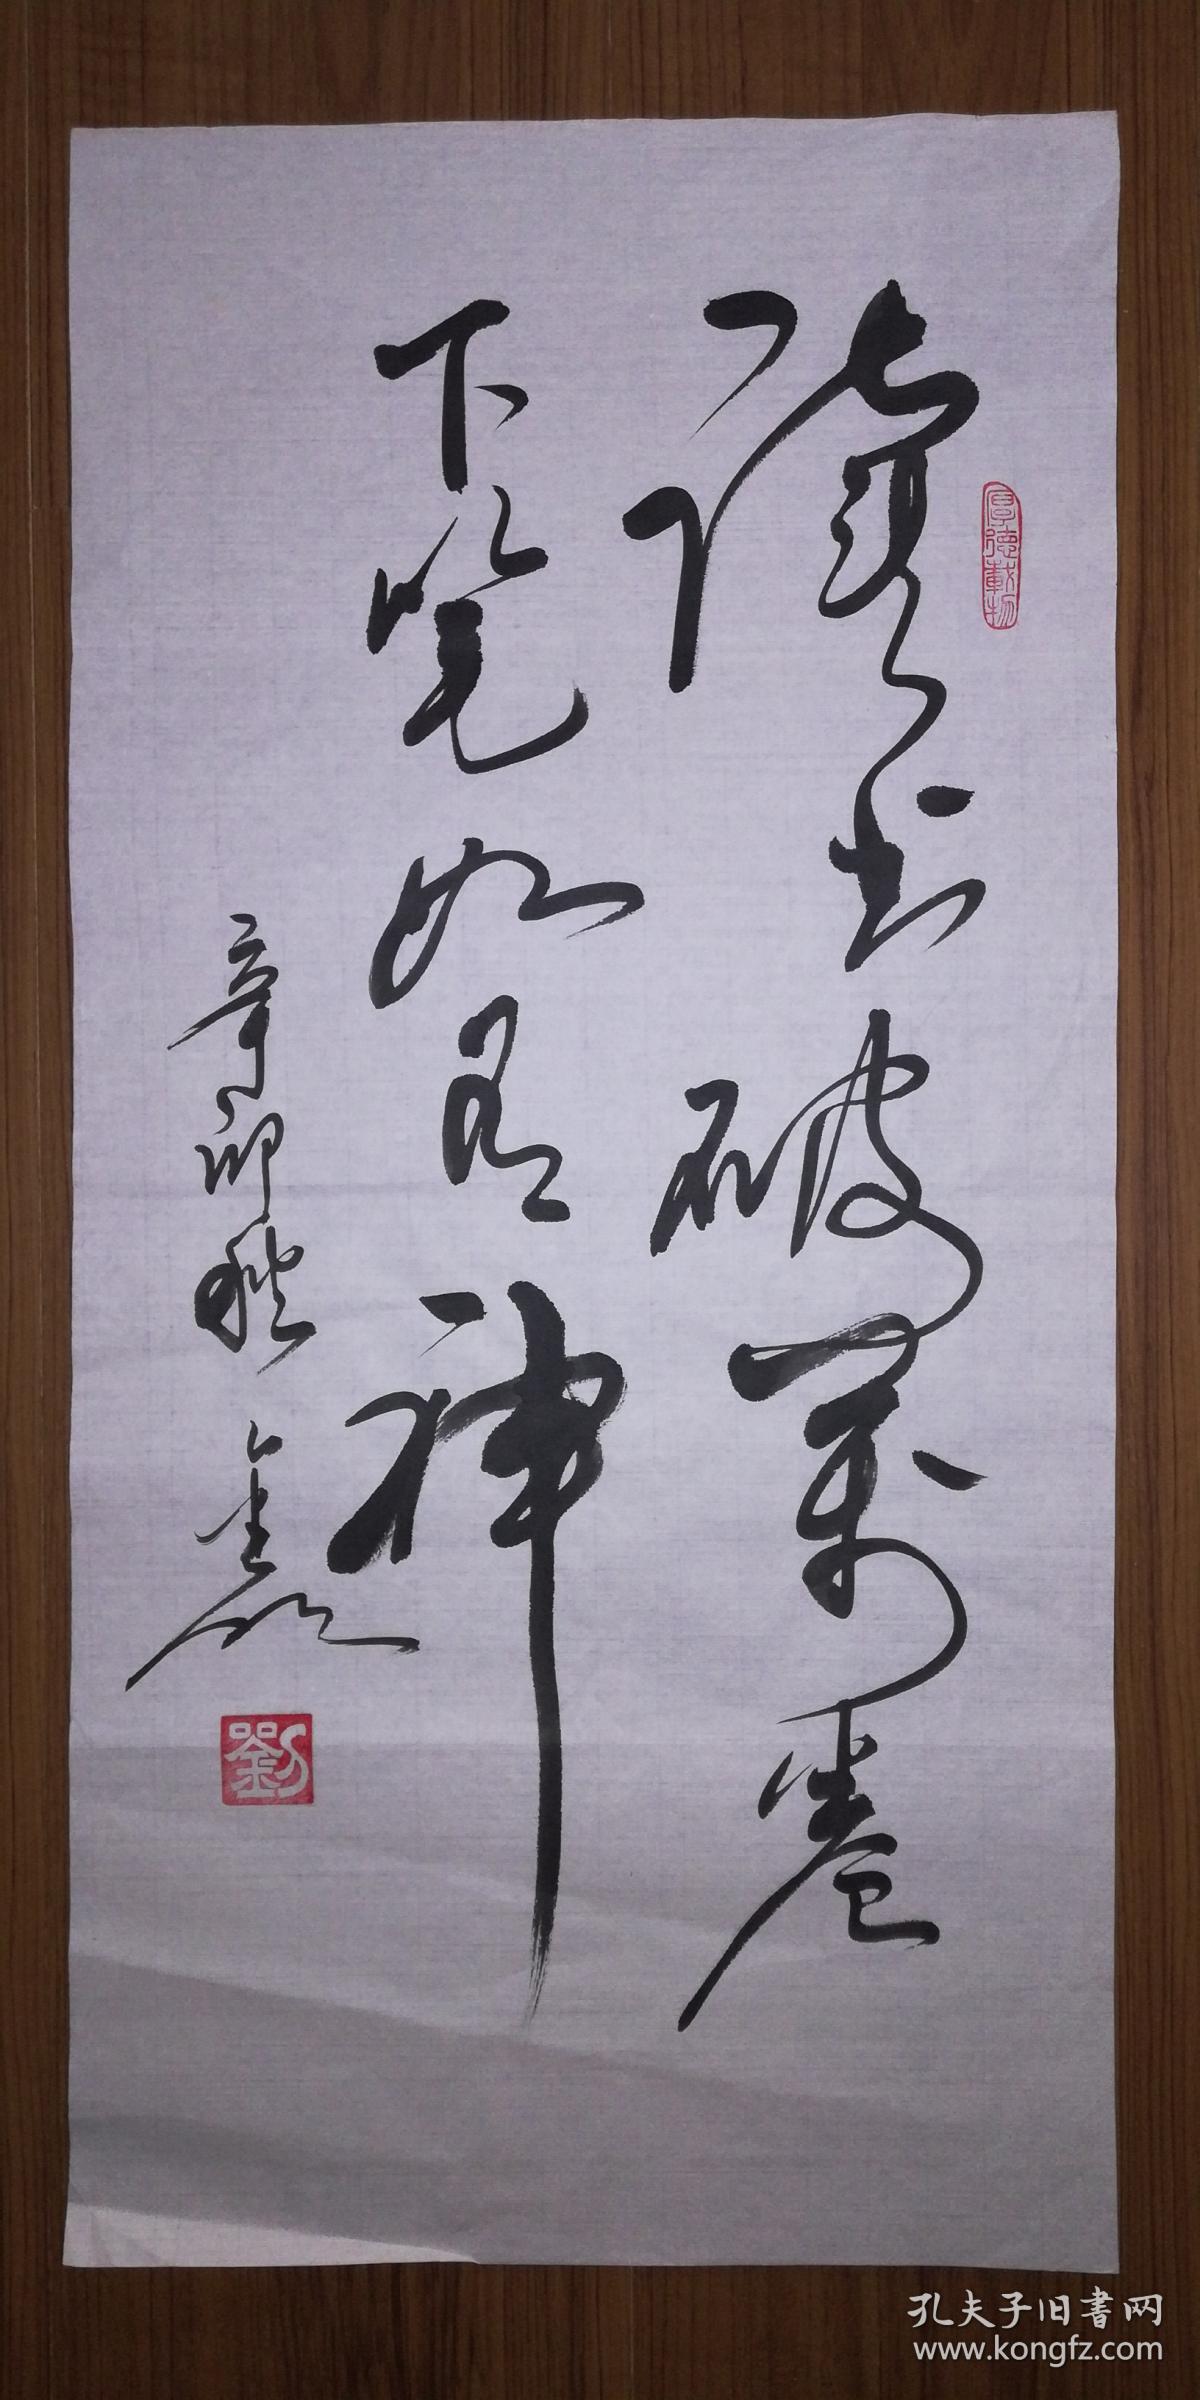 讀书破萬卷
下笔如有神
辛卯秋
厚德載物
劉
孔夫子旧書网
www.kongfz.com